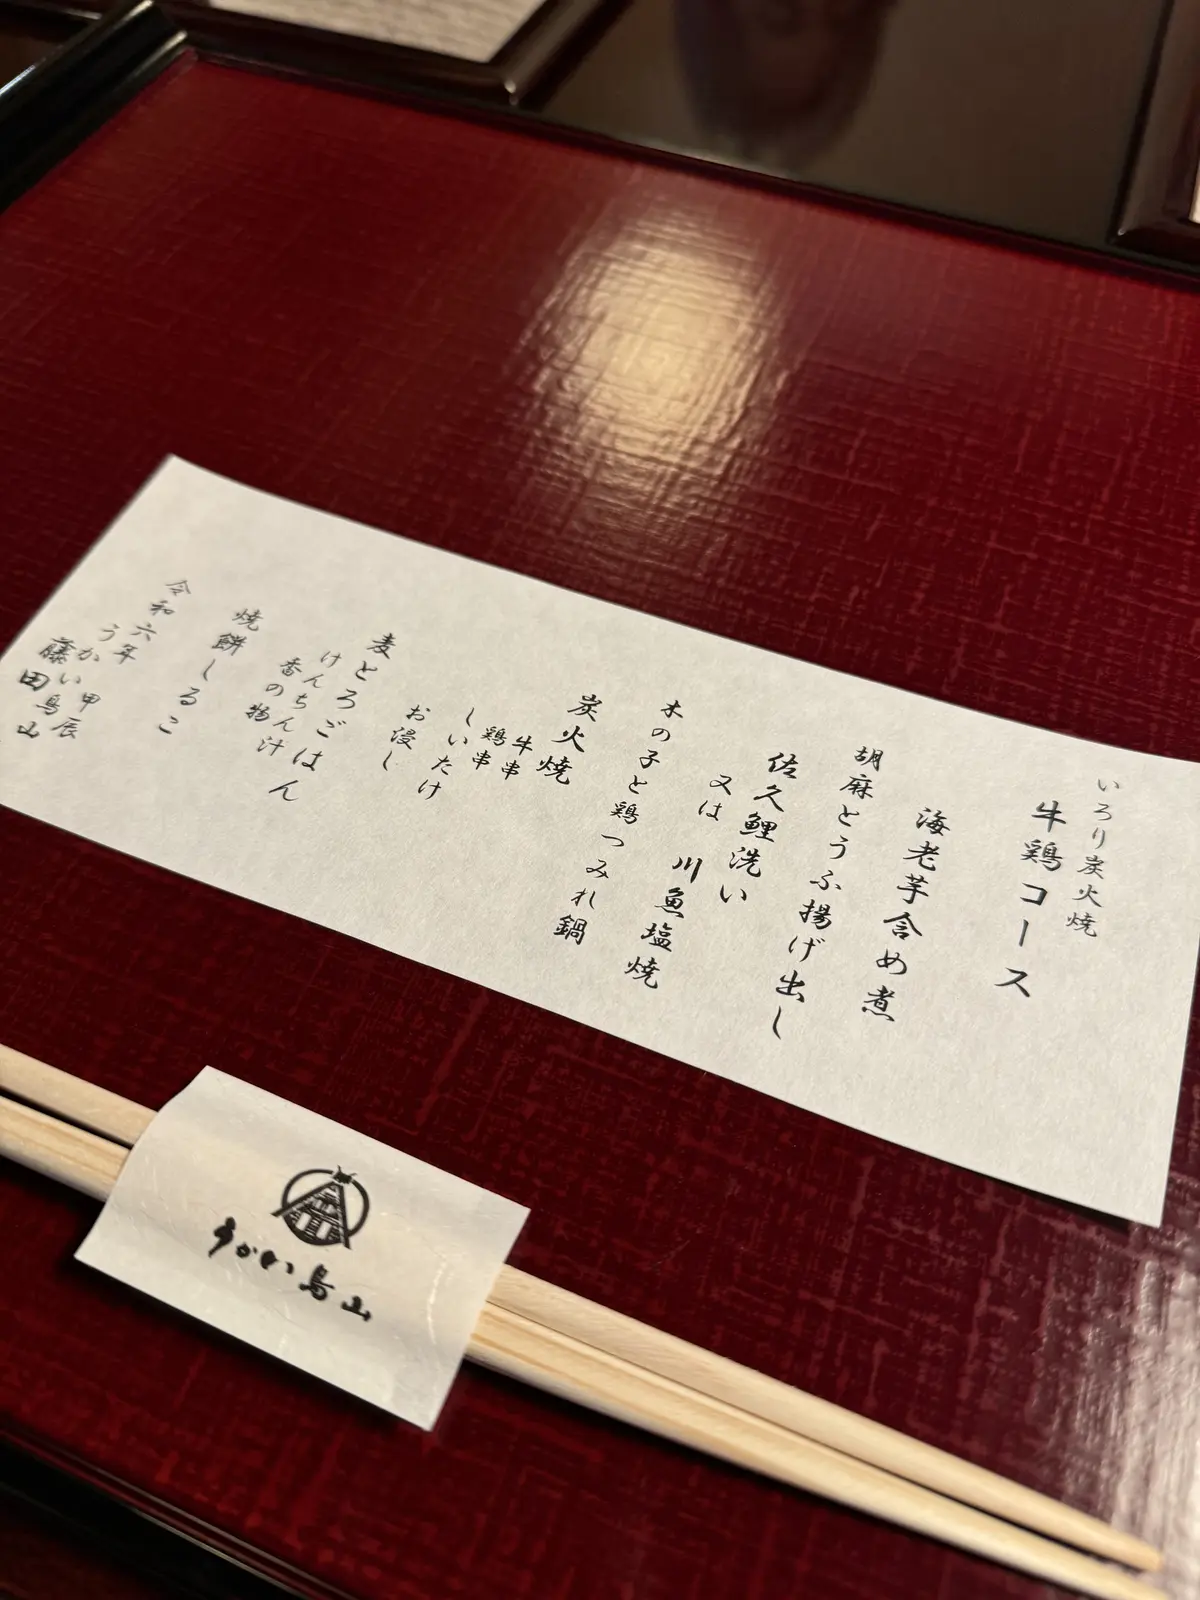 いろり炭火焼
牛鶏コース
海老芋含め煮
胡麻とうふ揚げ出し
佐久鯉洗い
又は 川魚塩焼
木の子と鶏つみれ鍋
炭火焼
牛串
鶏串
しいたけ
お浸し
麦とろごはん
けんちん汁
香の物
焼餅しるこ
令和六年 甲辰
うかい鳥山
藤田
うかい鳥山